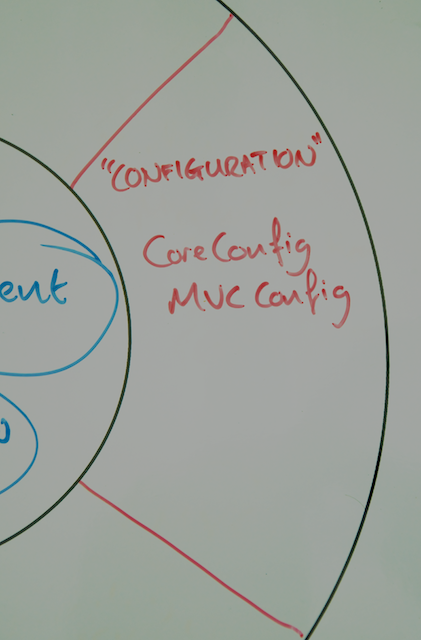 "CONFIGURATION"
CoreConfig
MVCConfig
ent